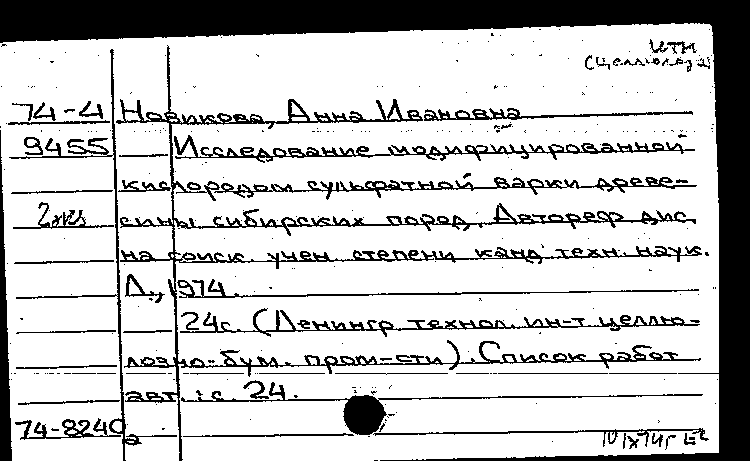 ИТН
(Целлюлоза)
74-4 Новикова, Анна Ивановна
9455 Исследование модифицированной
кислородом сульфатной варки древе-
2 экз сины сибирских пород. Автореф дис.
на соиск. учен. степени канд. техн. наук.
Л., 1974.
24с. (Ленингр. технол. ин-т целлю-
лозно-бум. пром-сти). Список работ
авт.: с. 24.
74-8240